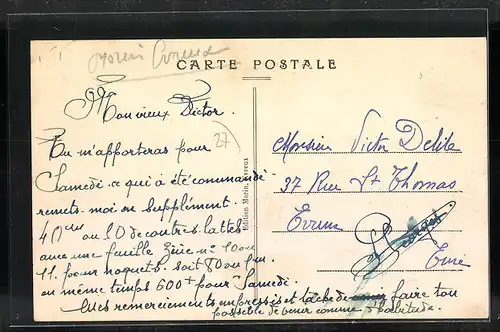 CARTE POSTALE
Mon vieux Victor.
Tu m'apporteras pour
Samedi ce qui a été commandé
remets-moi en supplément.
ou 10 de contre lattes
avec une feuille n° 10 ou
11. pour noquets. soit 80
en même temps 600 pour Samedi.
Mes remerciements empressés et tâche de faire ton
possible de venir comme d'habitude.
27
Edition Morin, Evreux
Monsieur Victor Delile
37 Rue St Thomas
Evreux
Eure